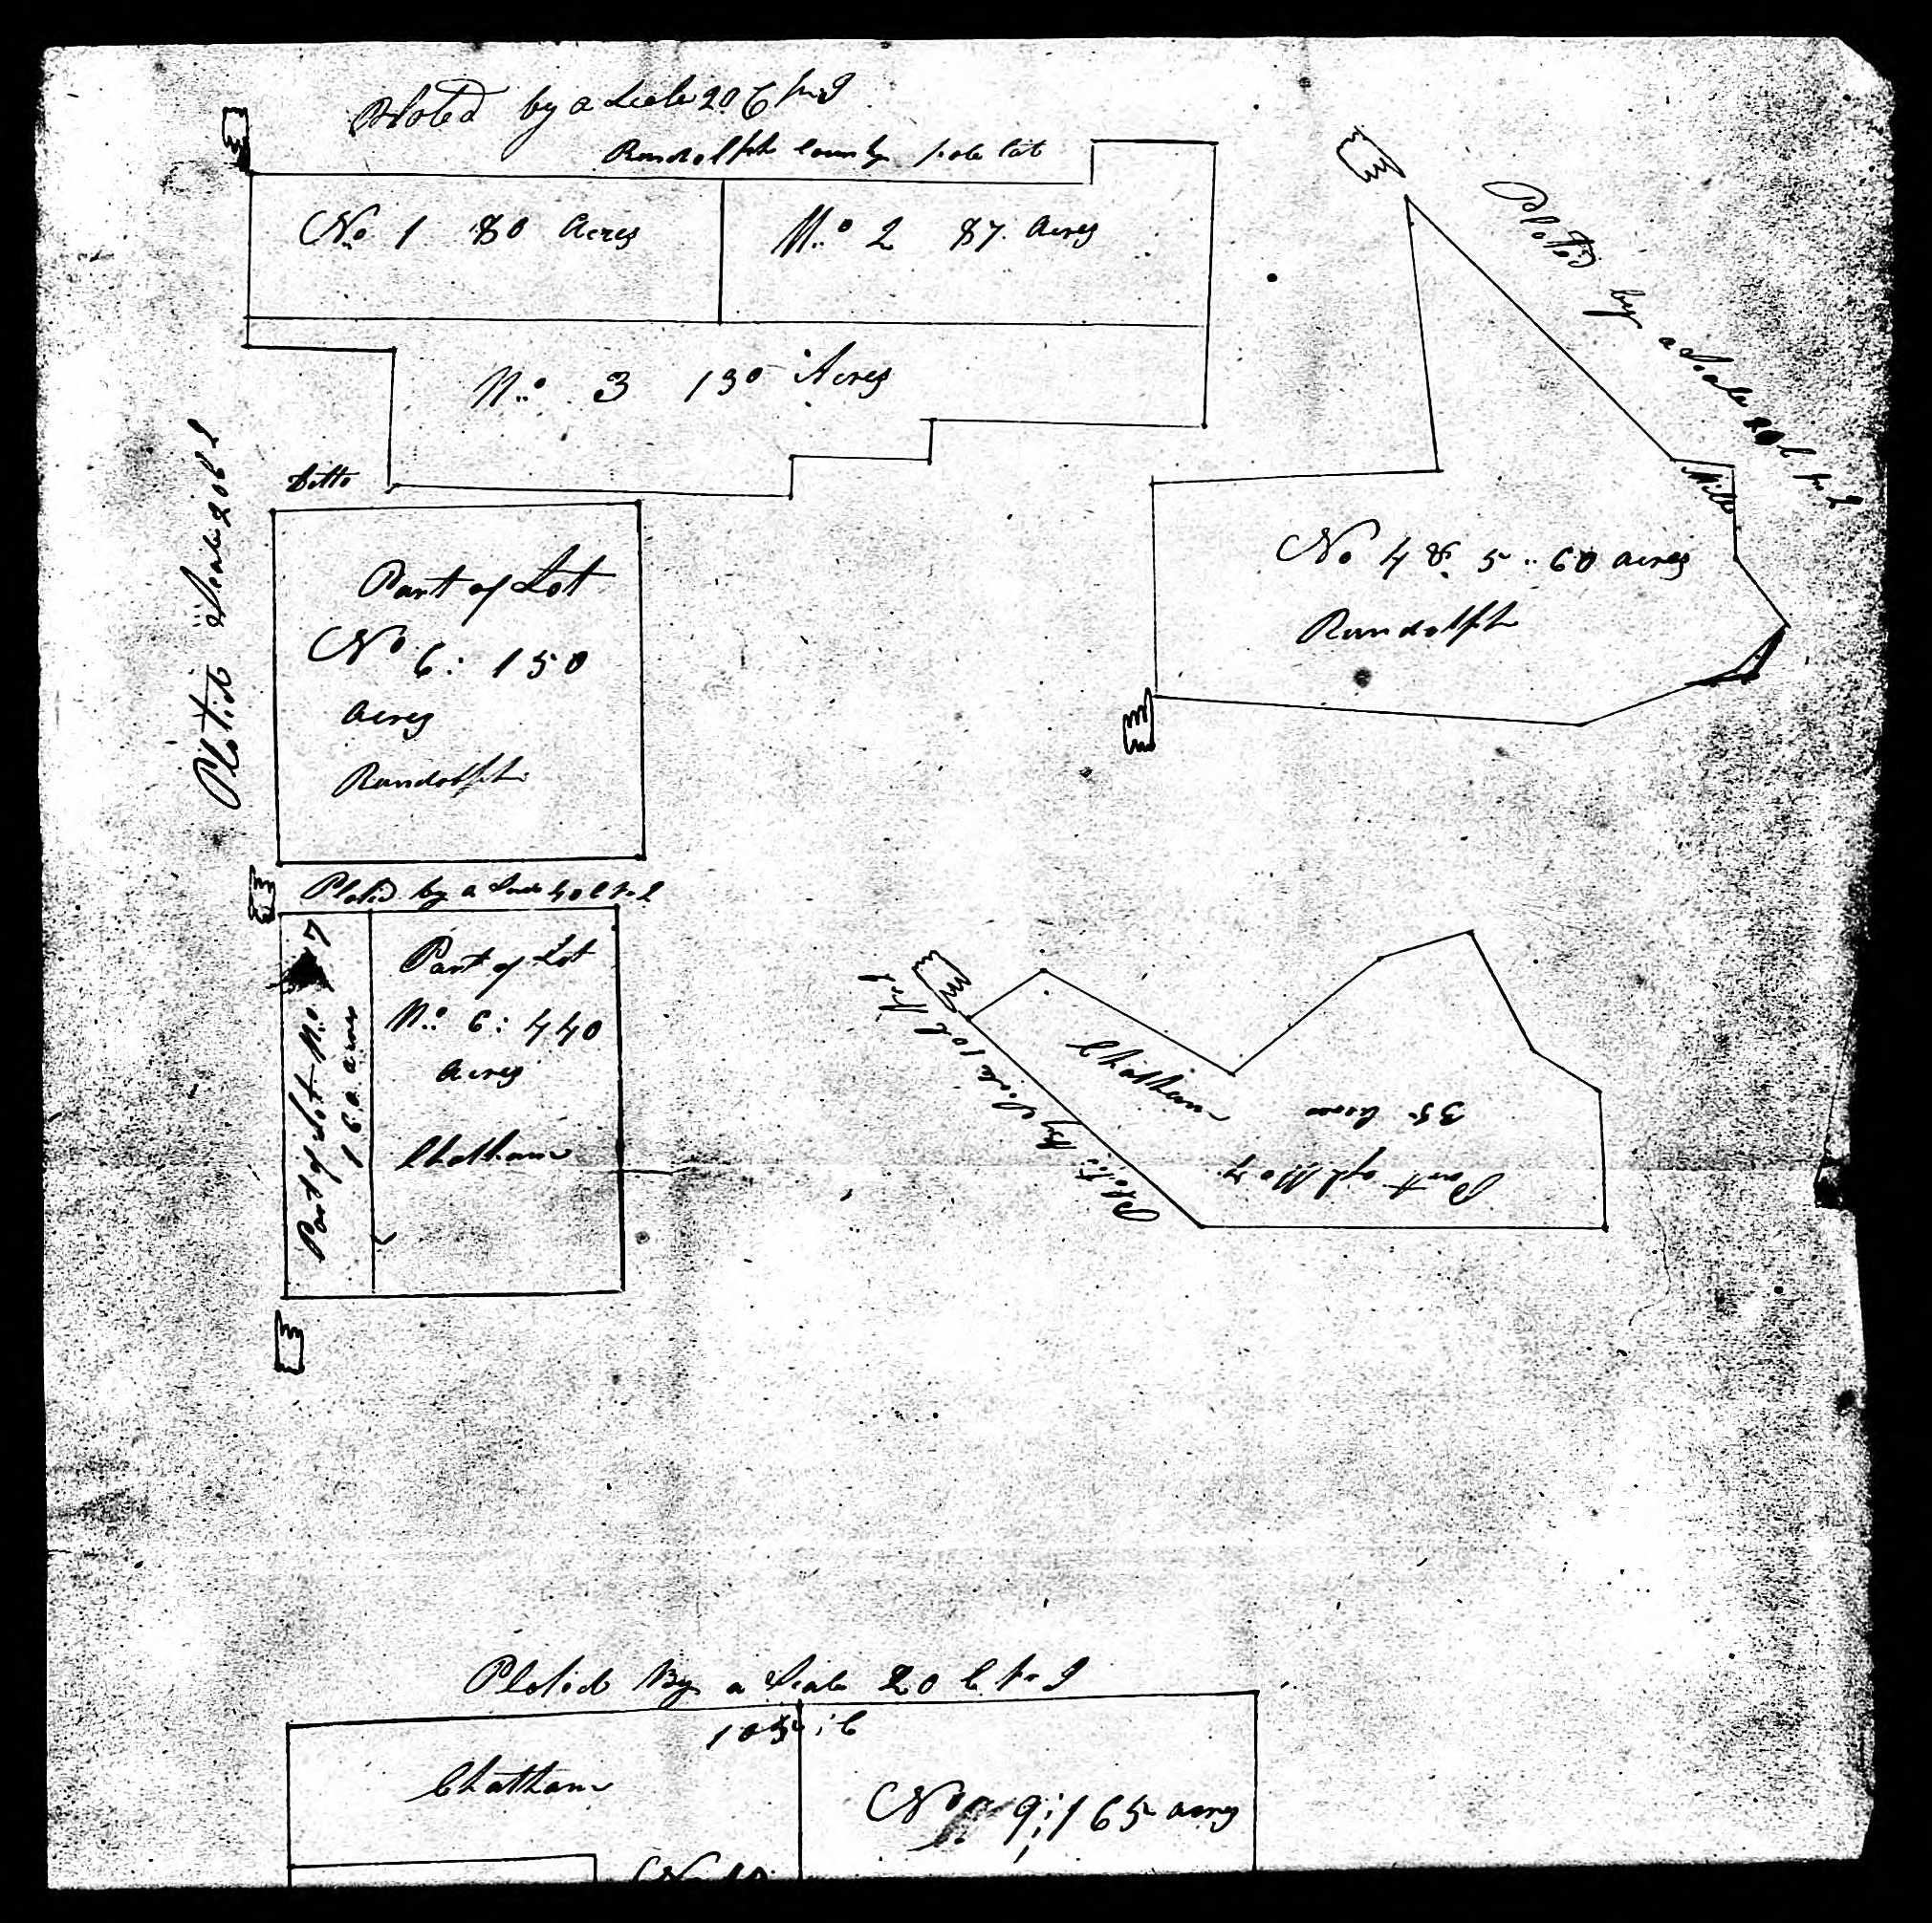 Ploted by a Scale 20 C pr I
Randolph County
No. 1 80 Acres
No. 2 87. Acres
No. 3 130 Acres
Ditto
Plotid Scale 20 C
Part of Lot
No 6: 150
Acres
Randolph
Ploted by a Scale 20 C pr I
Mill
No 4 & 5 .. 60 acres
Randolph
Ploted by a Scale 40 C pr I
Part of Lot No. 7
160 acres
Part of Lot
No. 6: 440
Acres
Chatham
Plotid By Scale 10 C pr I
Chatham
35 Acres
Part of L No 7
Plotid By a Scale 20 C pr I
Chatham
No 9; 165 acres